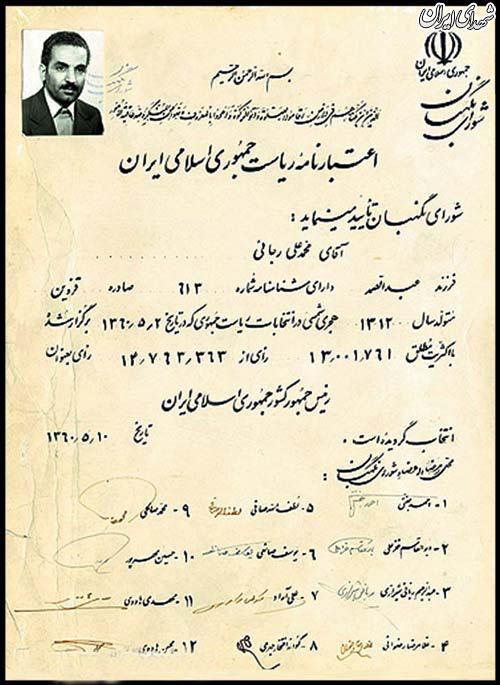 شهدای ایران
جمهوری اسلامی ایران
شورای نگهبان
بسم الله الرحمن الرحیم
اعتبارنامهٔ ریاست جمهوری اسلامی ایران
شورای نگهبان تأیید مینماید :
آقای محمدعلی رجائی
فرزند عبدالصمد دارای شناسنامه شماره ۶۱۳ صادره قزوین
متولد سال ۱۳۱۲ هجری شمسی در انتخابات ریاست جمهوری که در تاریخ ۱۳۶۰،۵،۲ برگزار شد
با اکثریت مطلق ۱۳،۰۰۱،۷۶۱ رأی از ۱۴،۷۶۳،۳۶۳ رأی بعنوان
رئیس جمهور کشور جمهوری اسلامی ایران
انتخاب گردیده است .
تاریخ ۱۳۶۰،۵،۱۰
محل امضاء اعضاء شورای نگهبان :
۱ - احمد جنتی
۲ - ابوالقاسم خزعلی
۳ - عبدالرحیم ربانی شیرازی
۴ - غلامرضا رضوانی
۵ - لطف الله صافی
۶ - یوسف صانعی
۷ - علی آراد
۸ - گودرز افتخار جهرمی
۹ - محمد صالحی
۱۰ - حسین مهرپور
۱۱ - مهدی هادوی
۱۲ - محسن هادوی